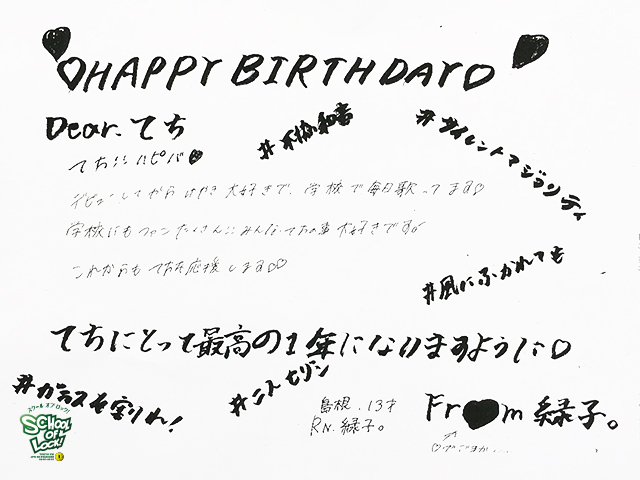 ♡HAPPY BIRTHDAY♡
Dear.てち
#不協和音
#サイレントマジョリティ
てち!! ハピバ♥
デビューしてからけやき大好きで、学校で毎日歌ってます♡
学校にもファンたくさん!! みんなてちの事大好きです
これからもてちを応援します♡♡
#風にふかれても
てちにとって最高の1年になりますように♡
#ガラスを割れ!
#二人セゾン
島根.13才
RN.緑子。
Fr♥m 緑子。
スクール オブ ロック!
SCHOOL OF LOCK!